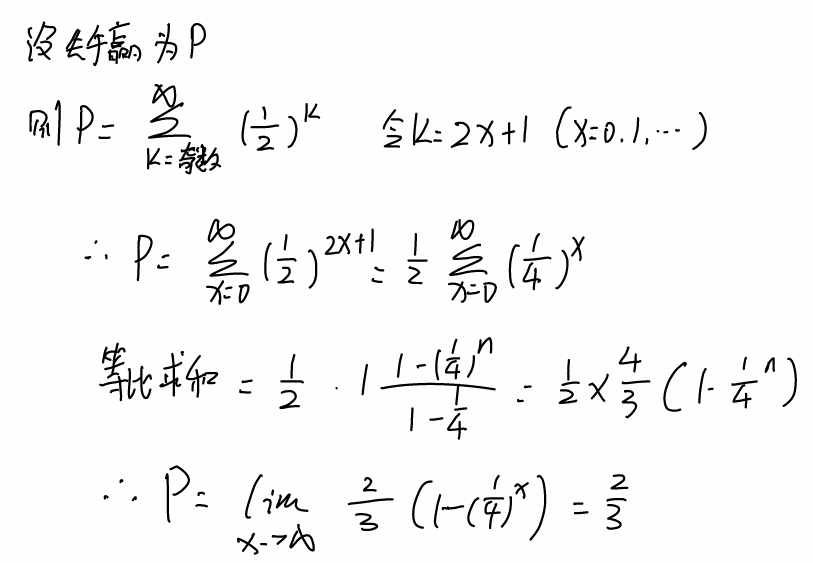 设先手赢为P
则P = \sum_{K=奇数}^{∞} (\frac{1}{2})^K 令K=2x+1 (x=0.1,⋯)
∴ P = \sum_{x=0}^{∞} (\frac{1}{2})^{2x+1} = \frac{1}{2} \sum_{x=0}^{∞} (\frac{1}{4})^x
等比求和 = \frac{1}{2} · 1 \frac{1-(\frac{1}{4})^n}{1-\frac{1}{4}} = \frac{1}{2} × \frac{4}{3} (1-\frac{1}{4}^n)
∴ P = \lim_{x->∞} \frac{2}{3} (1-(\frac{1}{4})^x) = \frac{2}{3}